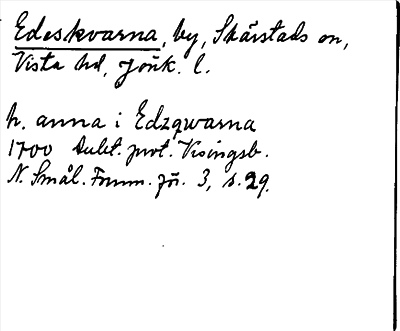 Edeskvarna, by, Skärstads sn,
Vista hd, Jönk. l.
h. anna i Edzqwarna
1700 Dubl. prot. Visingsb.
N. Smål. Fornm.för. 3, s. 29.